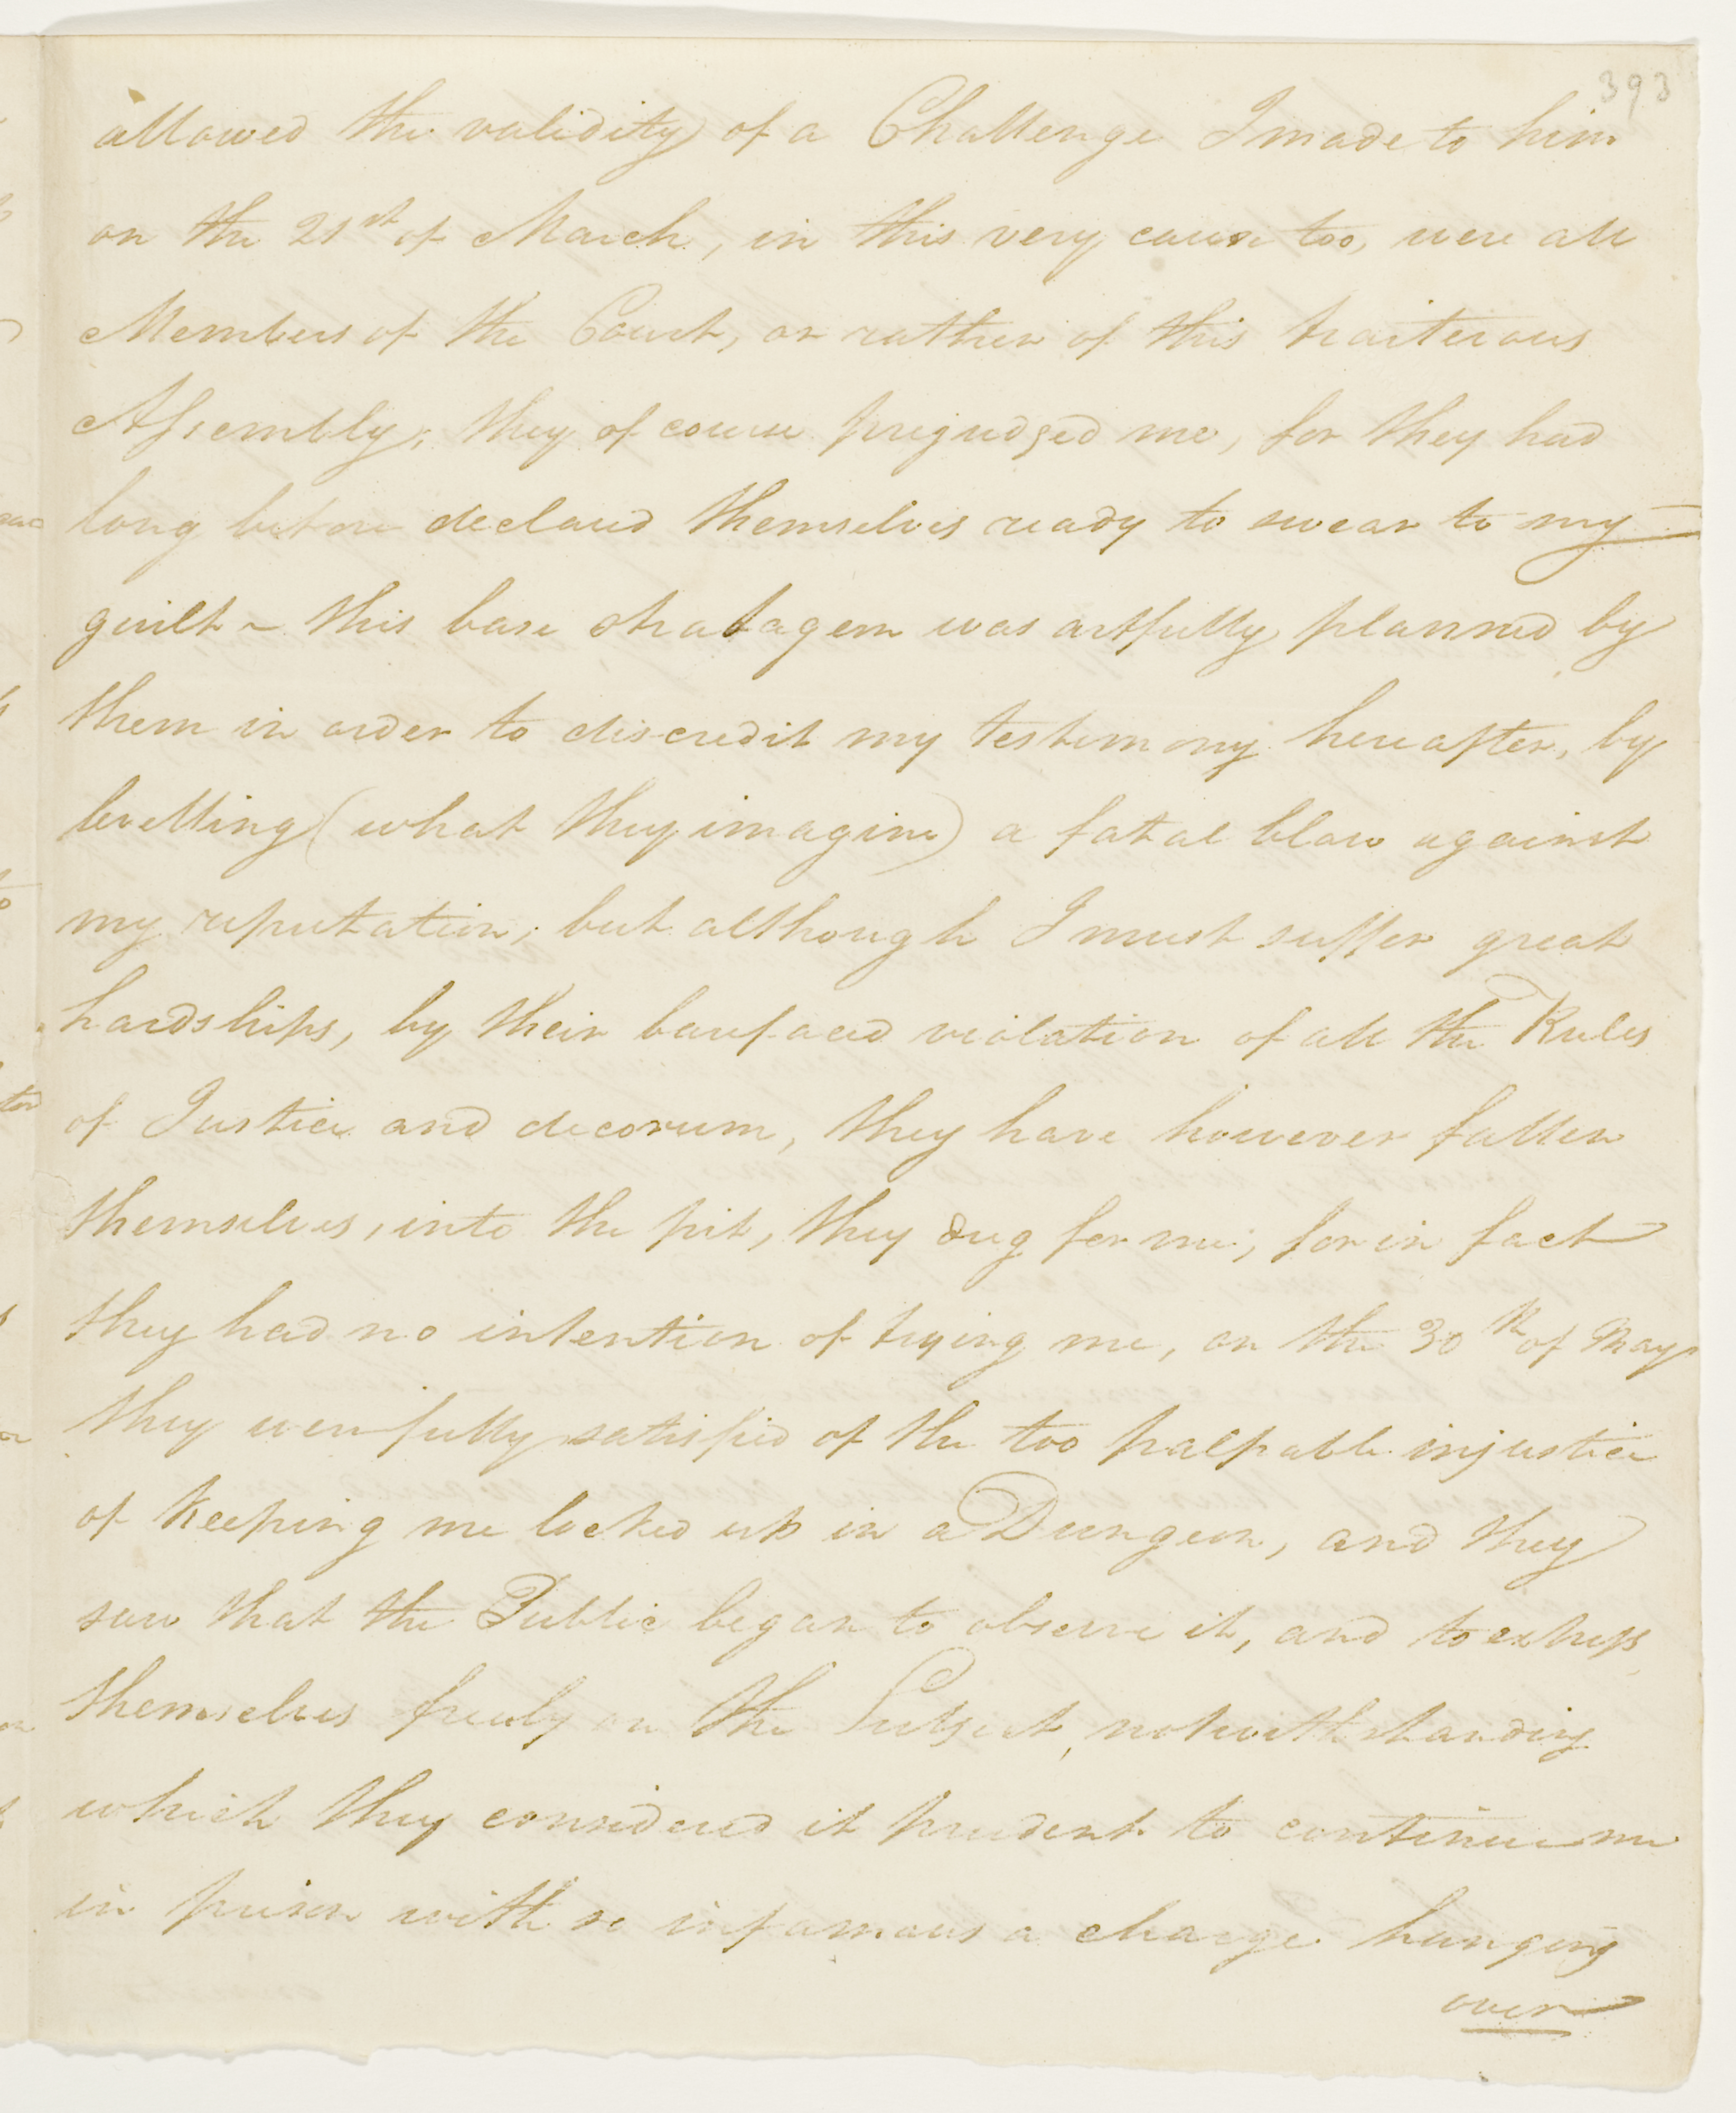 393
allowed the validity of a Challenge I made to him
on the 21st of March, in this very cause too, were all
Members of the Court, or rather of this traiterous
Assembly; they of course prejudged me, for they had
long before declared themselves ready to swear to my
guilt ~ this base stratagem was artfully planned by
them in order to discredit my testimony hereafter, by
levelling (what they imagine) a fatal blow against
my reputation; but although I must suffer great
hardships, by their barefaced violation of all the Rules
of Justice and decorum, they have however fallen
themselves, into the pit, they dug for me; for in fact
they had no intention of trying me, on the 30th of May
they were fully satisfied of the too palpable injustice
of keeping me locked up in a Dungeon, and they
saw that the Public began to observe it, and to express
themselves freely on the Subject, notwithstanding
which they considered it prudent to continue me
in prison with so infamous a charge hanging
over